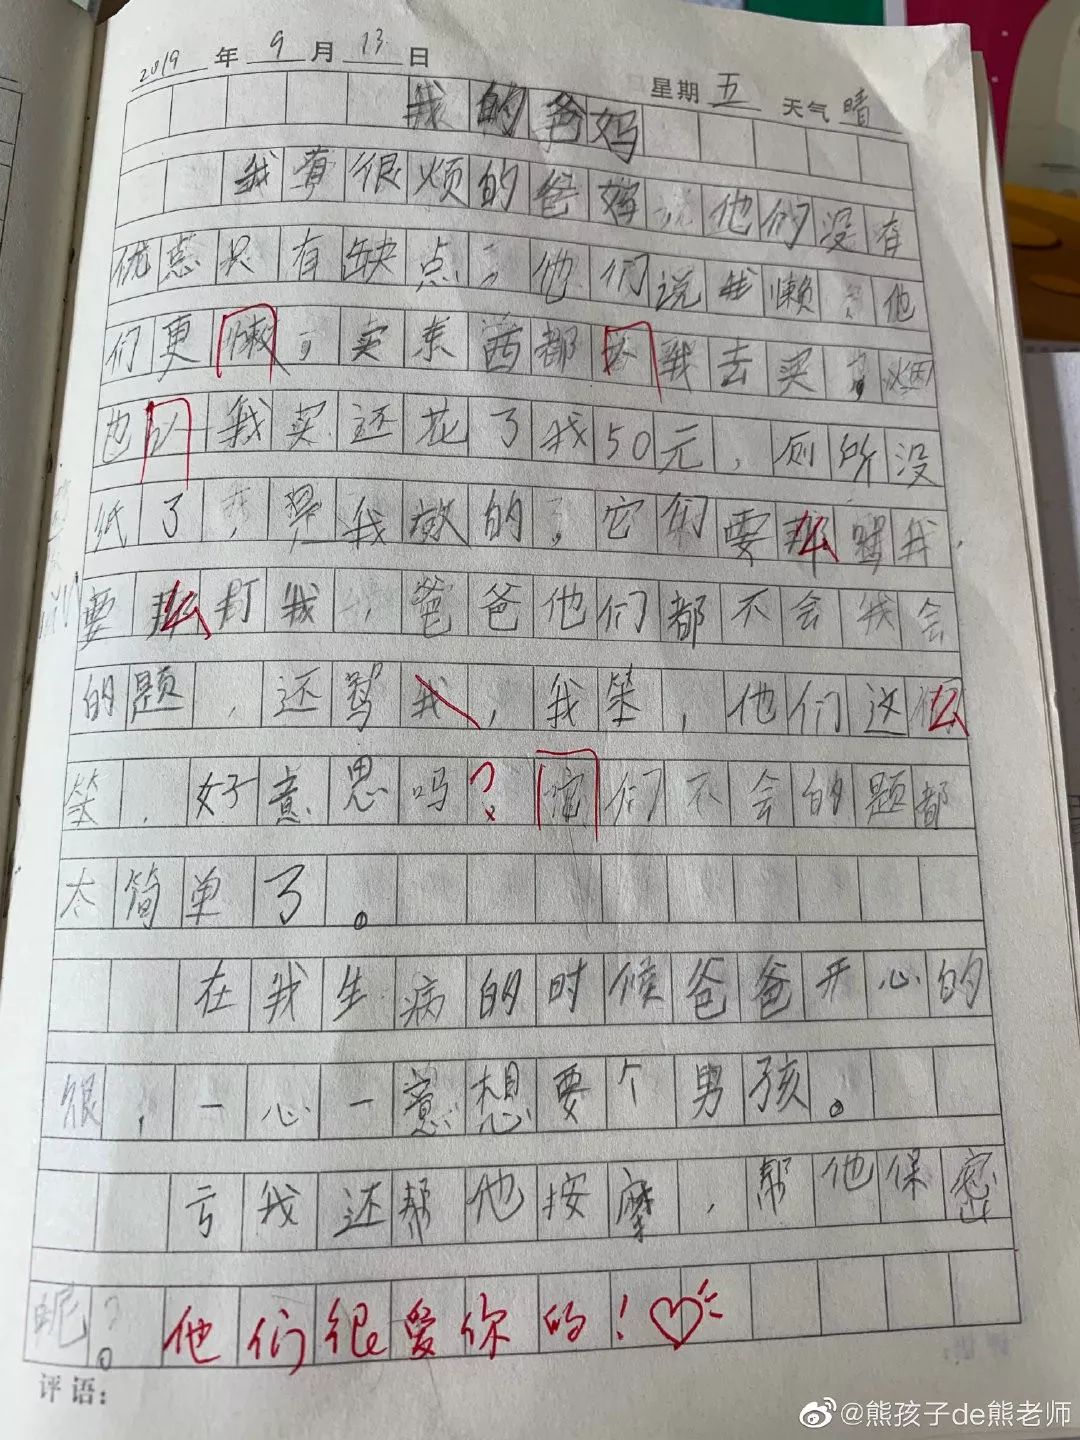 2019年9月13日
星期五 天气晴
我的爸妈
我有很烦的爸妈说他们没有
优恴只有缺点，他们说我懒，他
们更懒，卖东西都 我去买，烟
也 我买还花了我50元，厕所没
纸了， 我 的，它们要 骂我，
要 打我，爸爸他们都不会我会
的题，还骂我，我笨，他们这么
笨，好意思吗？它们不会的题都
太简单了。
在我生病的时候爸爸开心的
很，一心一意想要个男孩。
亏我还帮他按摩，帮他保密
呢。他们很爱你的！
评语：
@熊孩子de熊老师